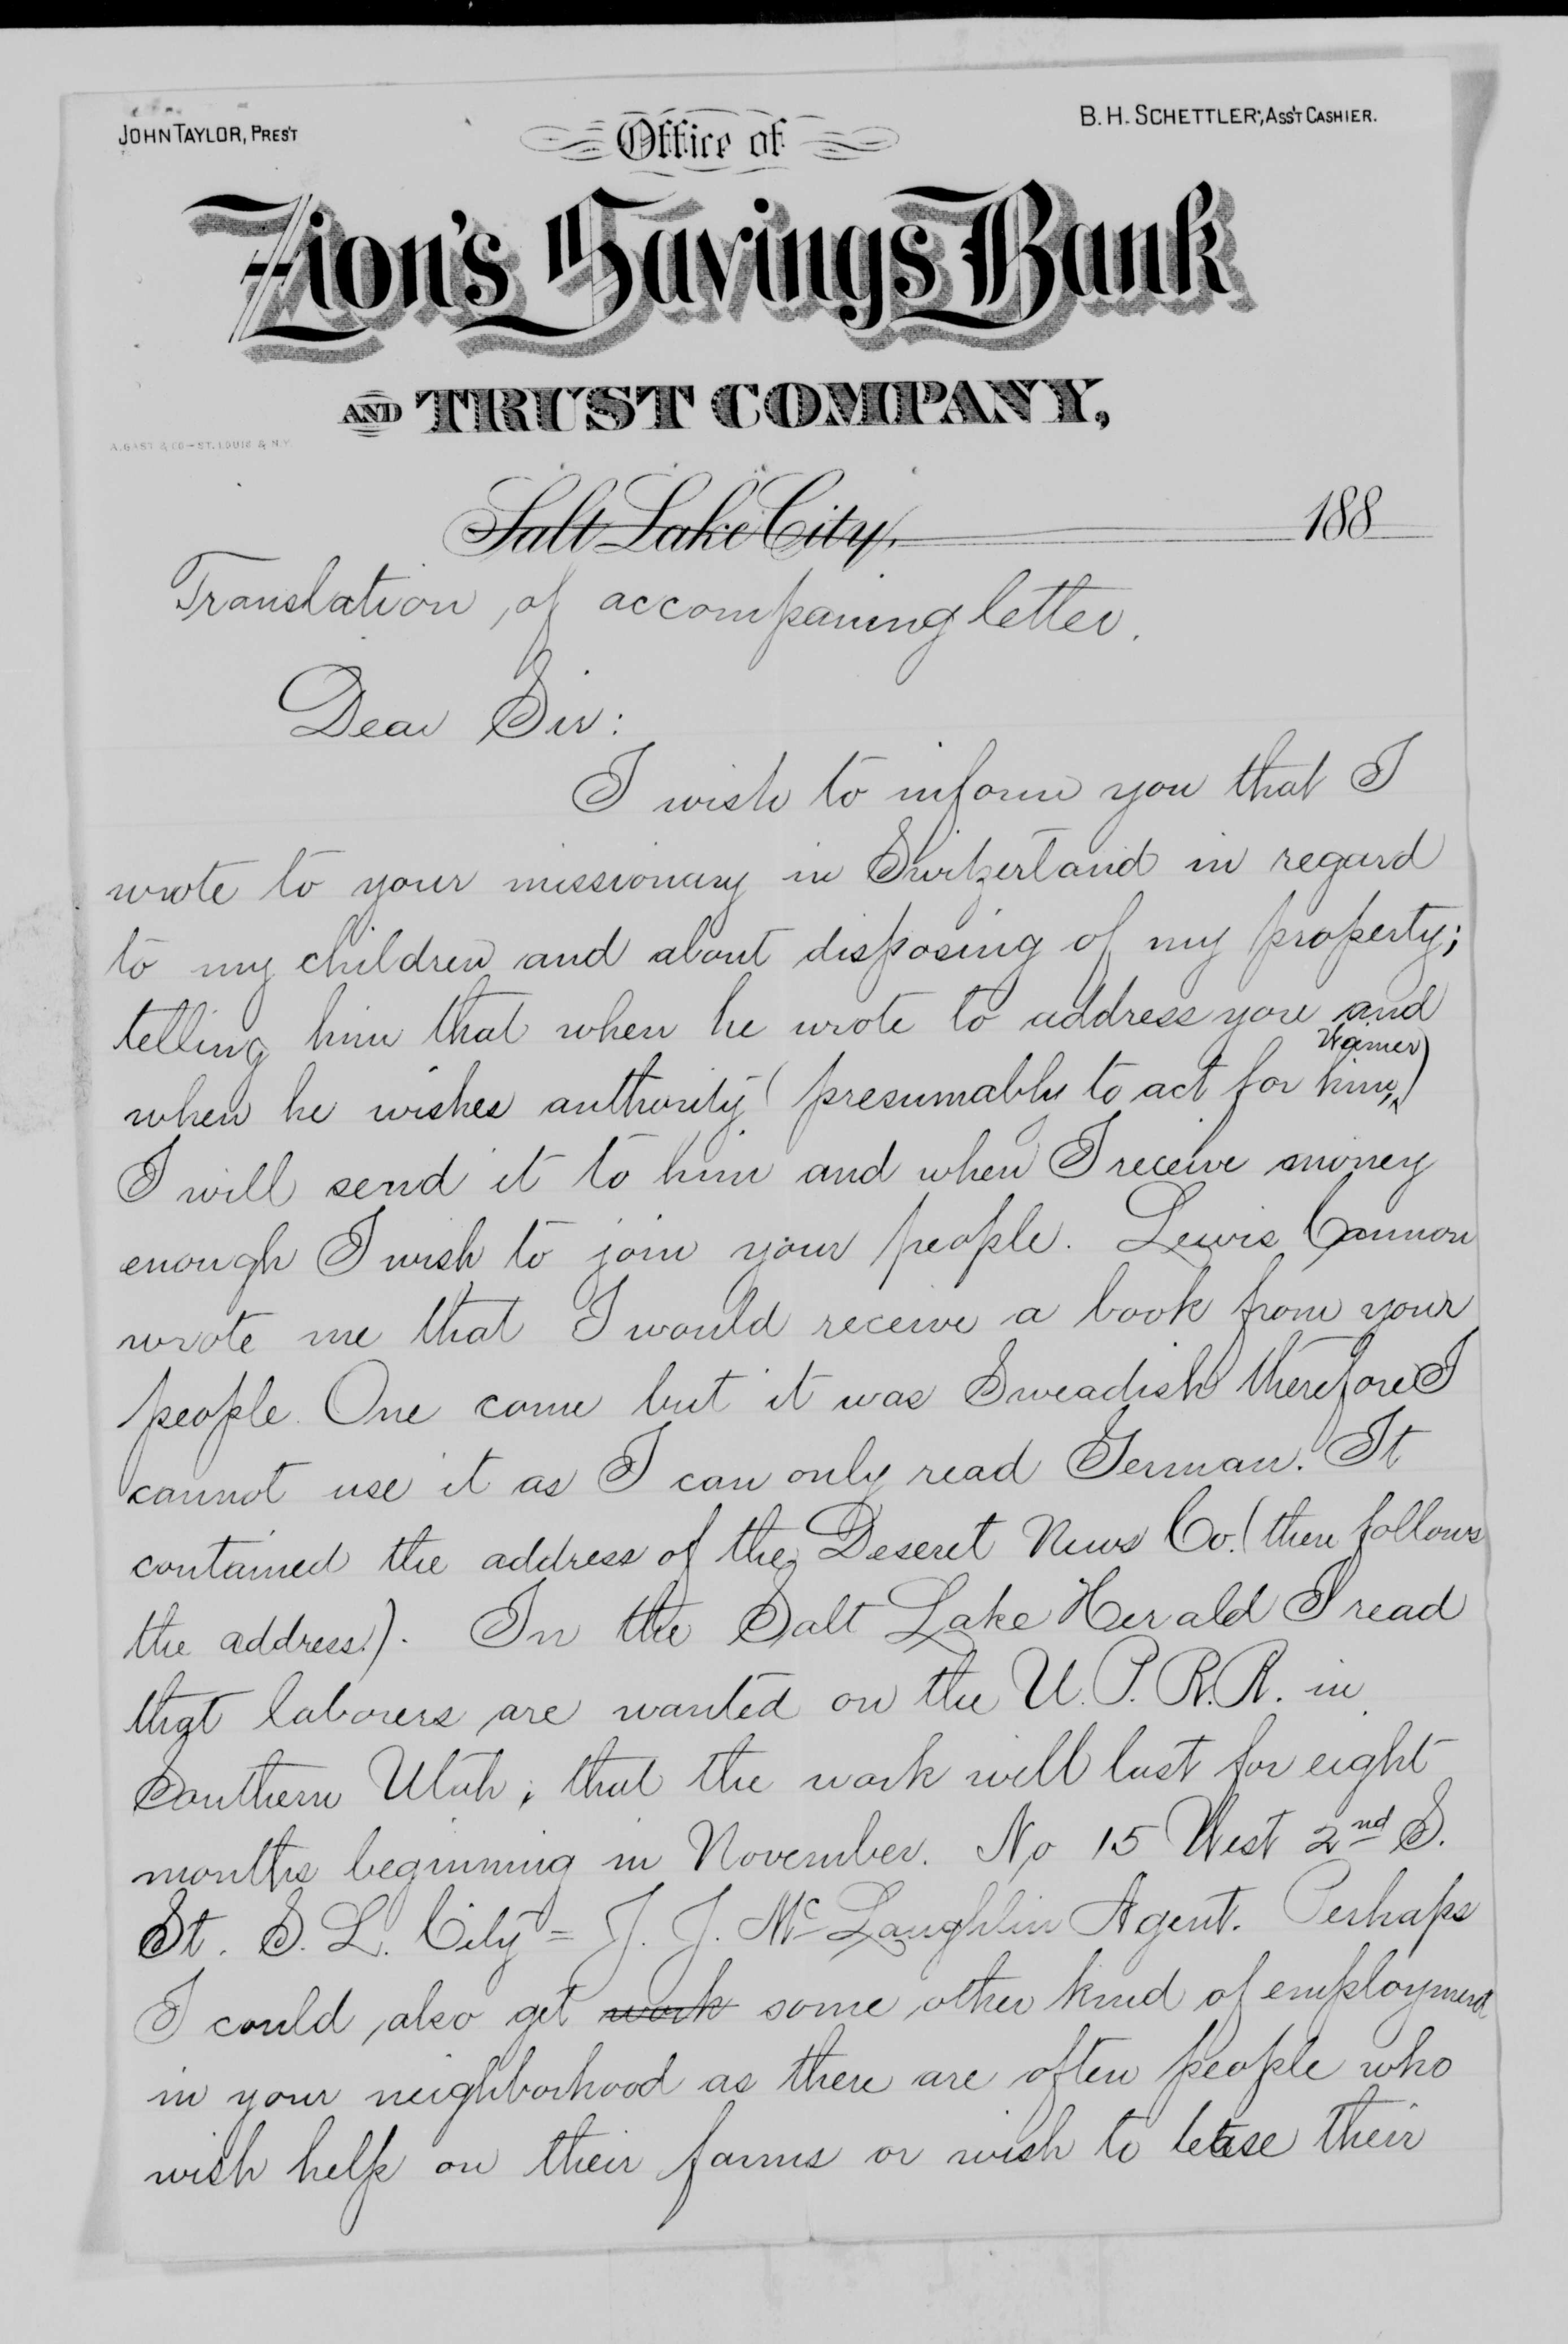 JOHN TAYLOR, PRES'T
B. H. SCHETTLER, ASS'T CASHIER.
Office of
Zion's Savings Bank
AND TRUST COMPANY,
A. GAST & CO – ST. LOUIS & N.Y.
Salt Lake City, 188
Translation of accompaning letter.
Dear Sir:
I wish to inform you that I
wrote to your missionary in Switzerland in regard
to my children and about disposing of my property;
telling him that when he wrote to address you and
when he wishes authority (presumably to act for him, Wainer)
I will send it to him and when I receive money
enough I wish to join your people. Lewis Cannon
wrote me that I would receive a book from your
people. One came but it was Sweadish therefore I
cannot use it as I can only read German. It
contained the address of the Deseret News Co. (then follows
the address.). In the Salt Lake Herald I read
that laborers are wanted on the U. P. R. R. in
Southern Utah; that the work will last for eight
months beginning in November. No 15 West 2nd S.
St. S. L. City = J. J. McLaughlin Agent. Perhaps
I could also get work some other kind of employment
in your neighborhood as there are often people who
wish help on their farms or wish to lease their